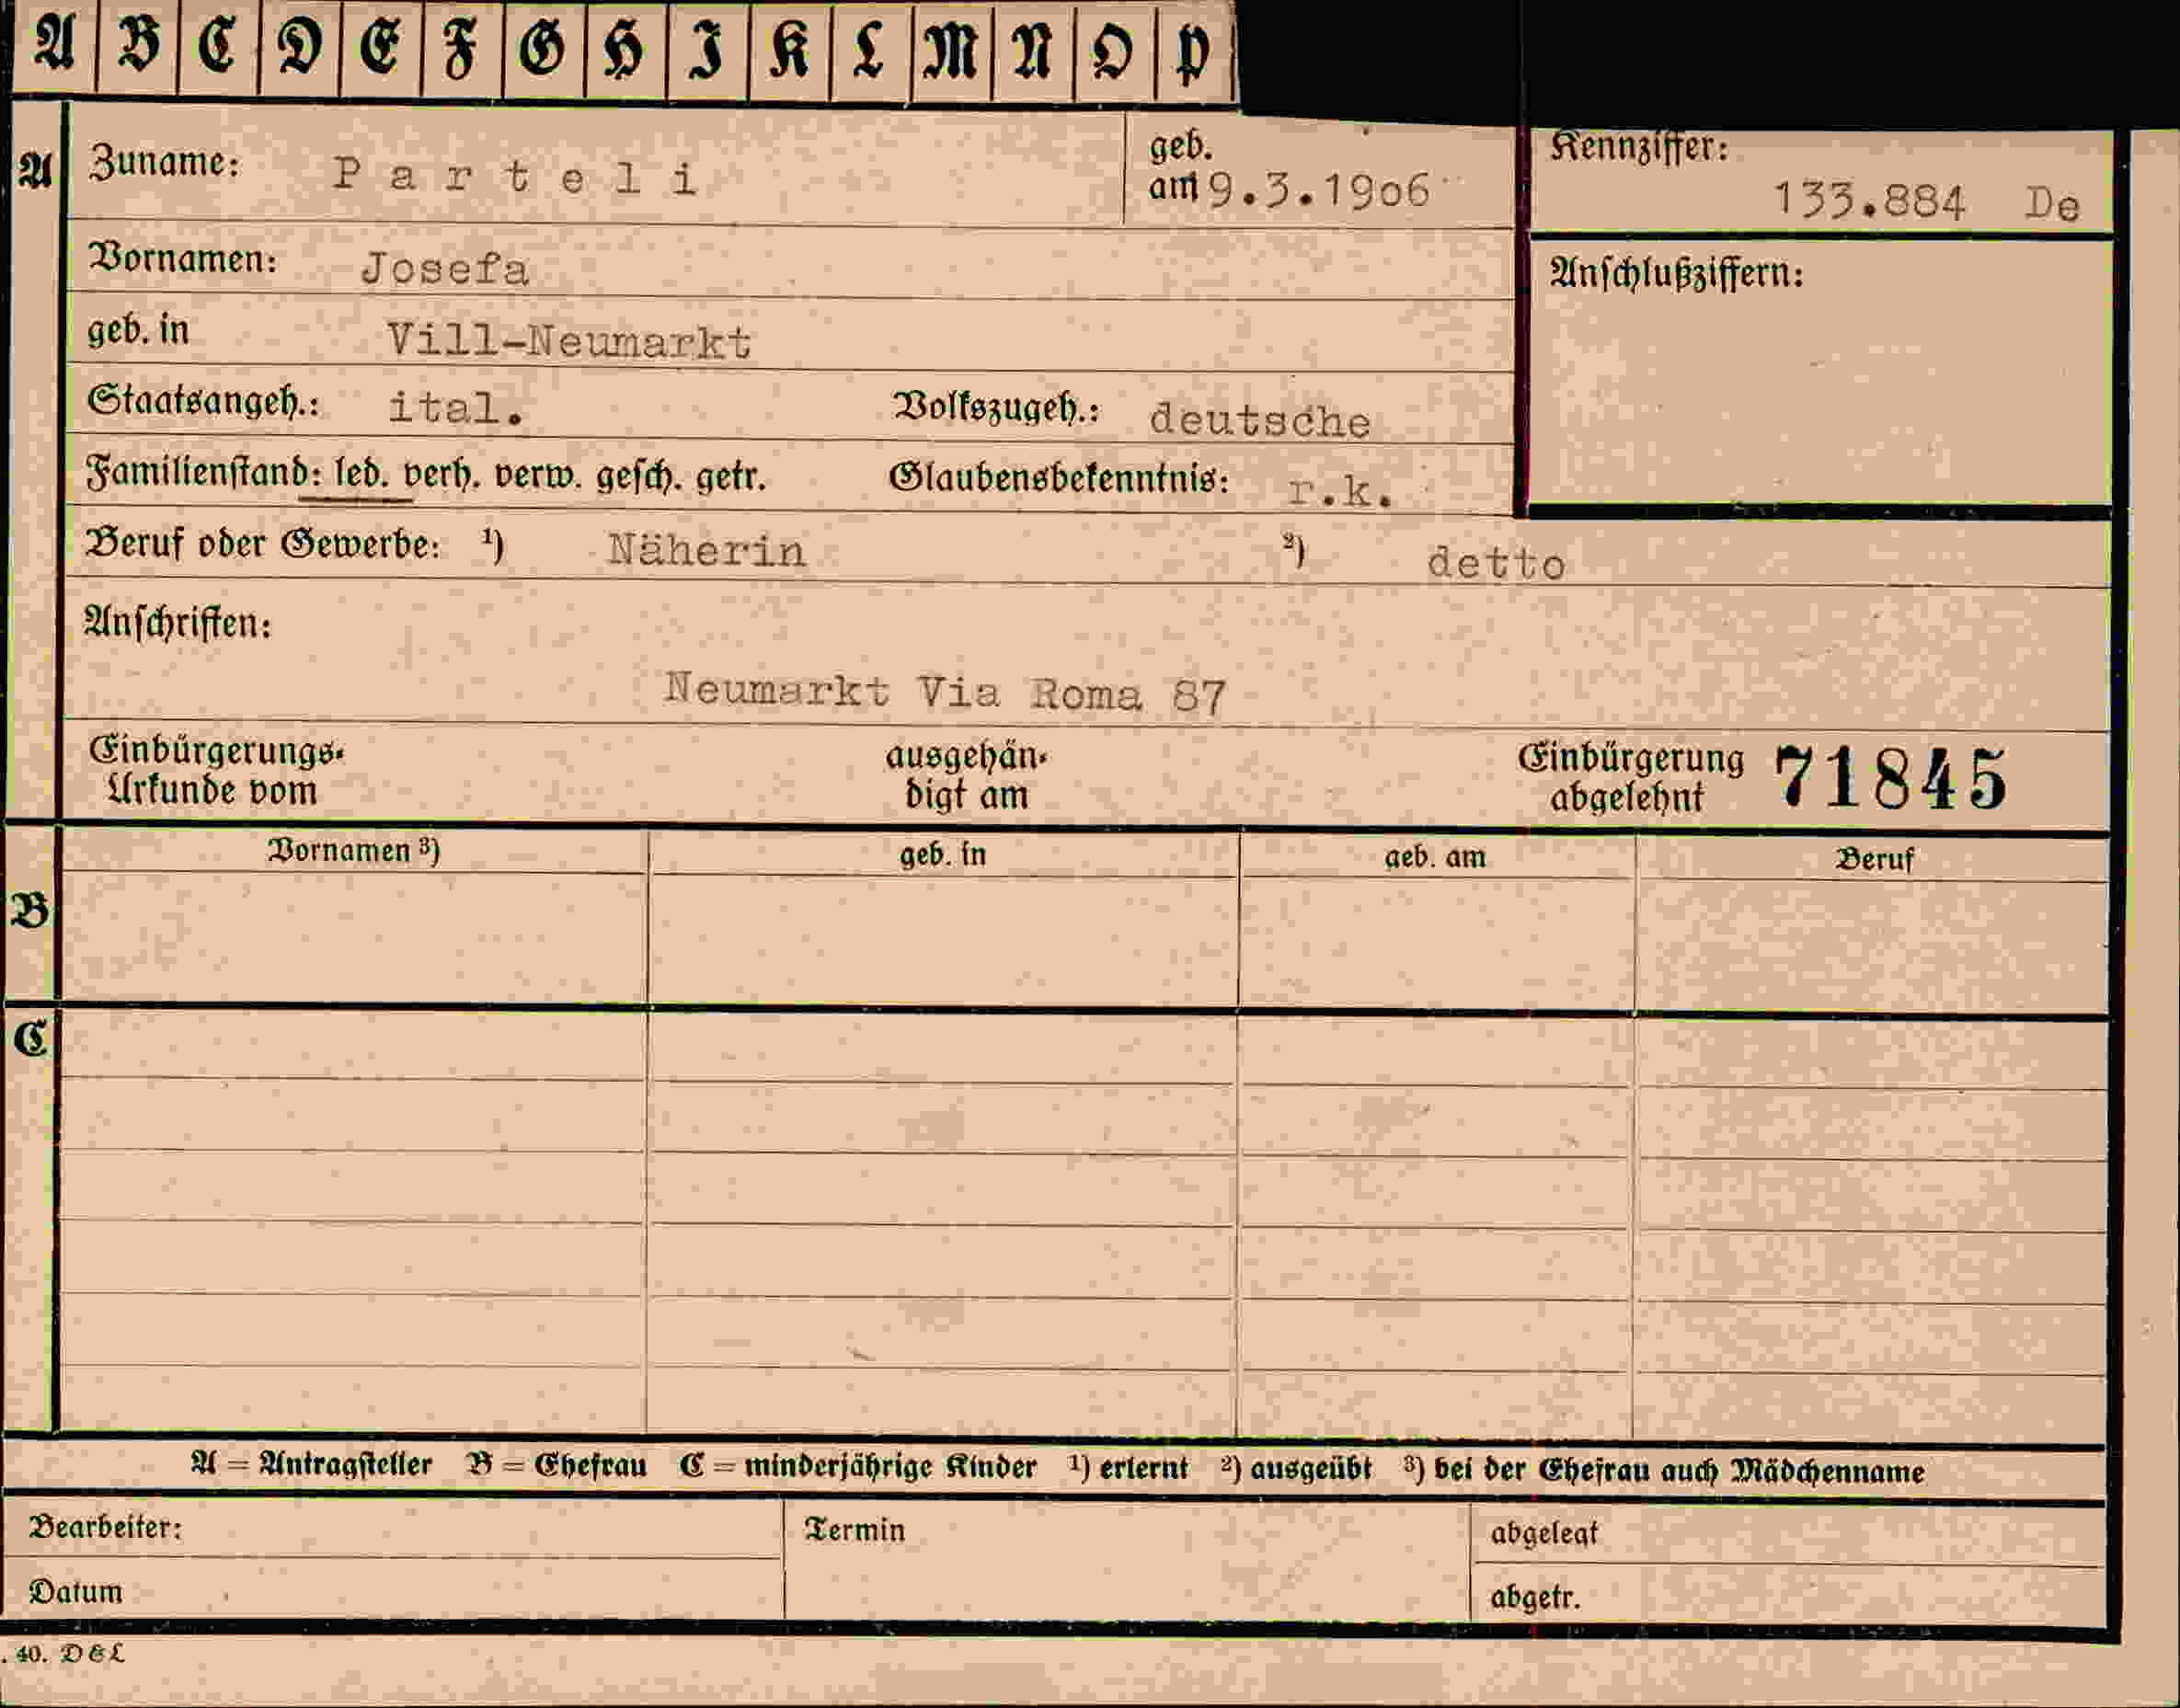 A B C D E F G H I K L M N O P
A Zuname: Parteli geb. am 9.3.1906 Kennziffer: 133.884 De
Vornamen: Josefa Anschlußziffern:
geb. in Vill-Neumarkt
Staatsangeh.: ital. Volkszugeh.: deutsche
Familienstand: led. verh. verw. gesch. getr. Glaubensbekenntnis: r.k.
Beruf oder Gewerbe: ¹) Näherin ²) detto
Anschriften:
Neumarkt Via Roma 87
Einbürgerungs- ausgehän- Einbürgerung 71845
Urkunde vom digt am abgelehnt
Vornamen ³) geb. in geb. am Beruf
B
C
A = Antragsteller B = Ehefrau C = minderjährige Kinder ¹) erlernt ²) ausgeübt ³) bei der Ehefrau auch Mädchenname
Bearbeiter: Termin abgelegt
Datum abgetr.
. 40. D & L